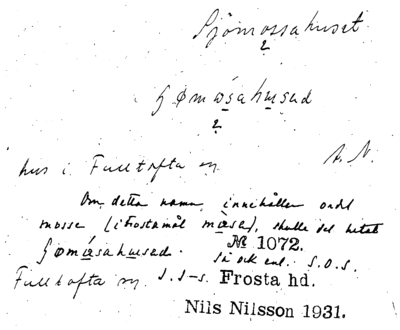 Sjömossahuset
2
ʃømåsahusad
2
hus i Fulltofta sn
N. N.
Om detta namn innehåller ordet
mosse (i frostamål måsa), skulle det hetat
ʃømåsahusad. Nr 1072.
Så ock enl. S.O.S.
Fulltofta sn. Frosta hd.
Nils Nilsson 1931.